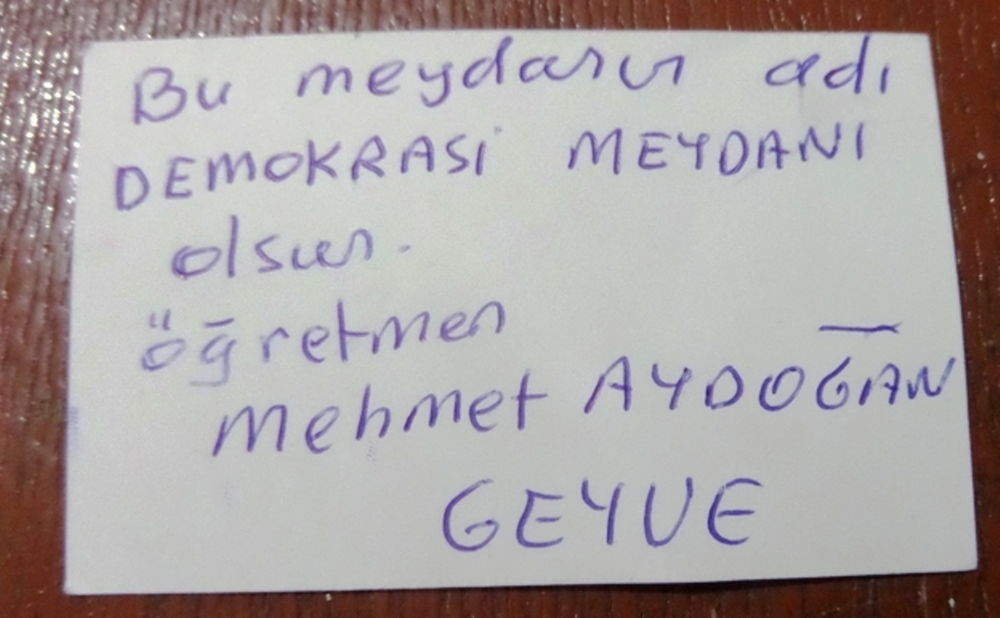 Bu meydanın adı
DEMOKRASİ MEYDANI
olsun.
öğretmen
Mehmet AYDOĞAN
GEYVE